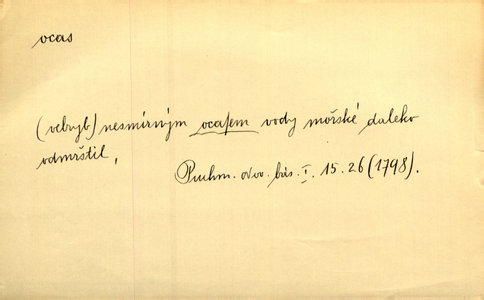 ocas
(velryb) nesmírným ocasem vody mořské daleko
odmrštil,
Puchm. Nov. bás. I. 15. 26 (1798).